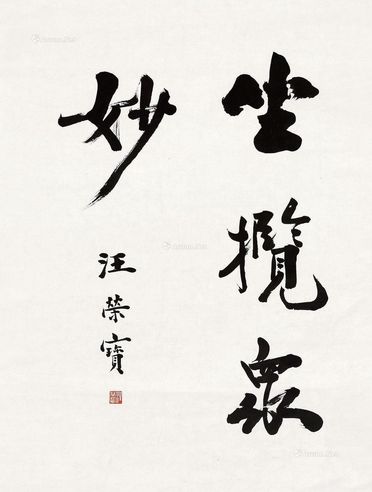 坐攬眾
妙
汪榮寶